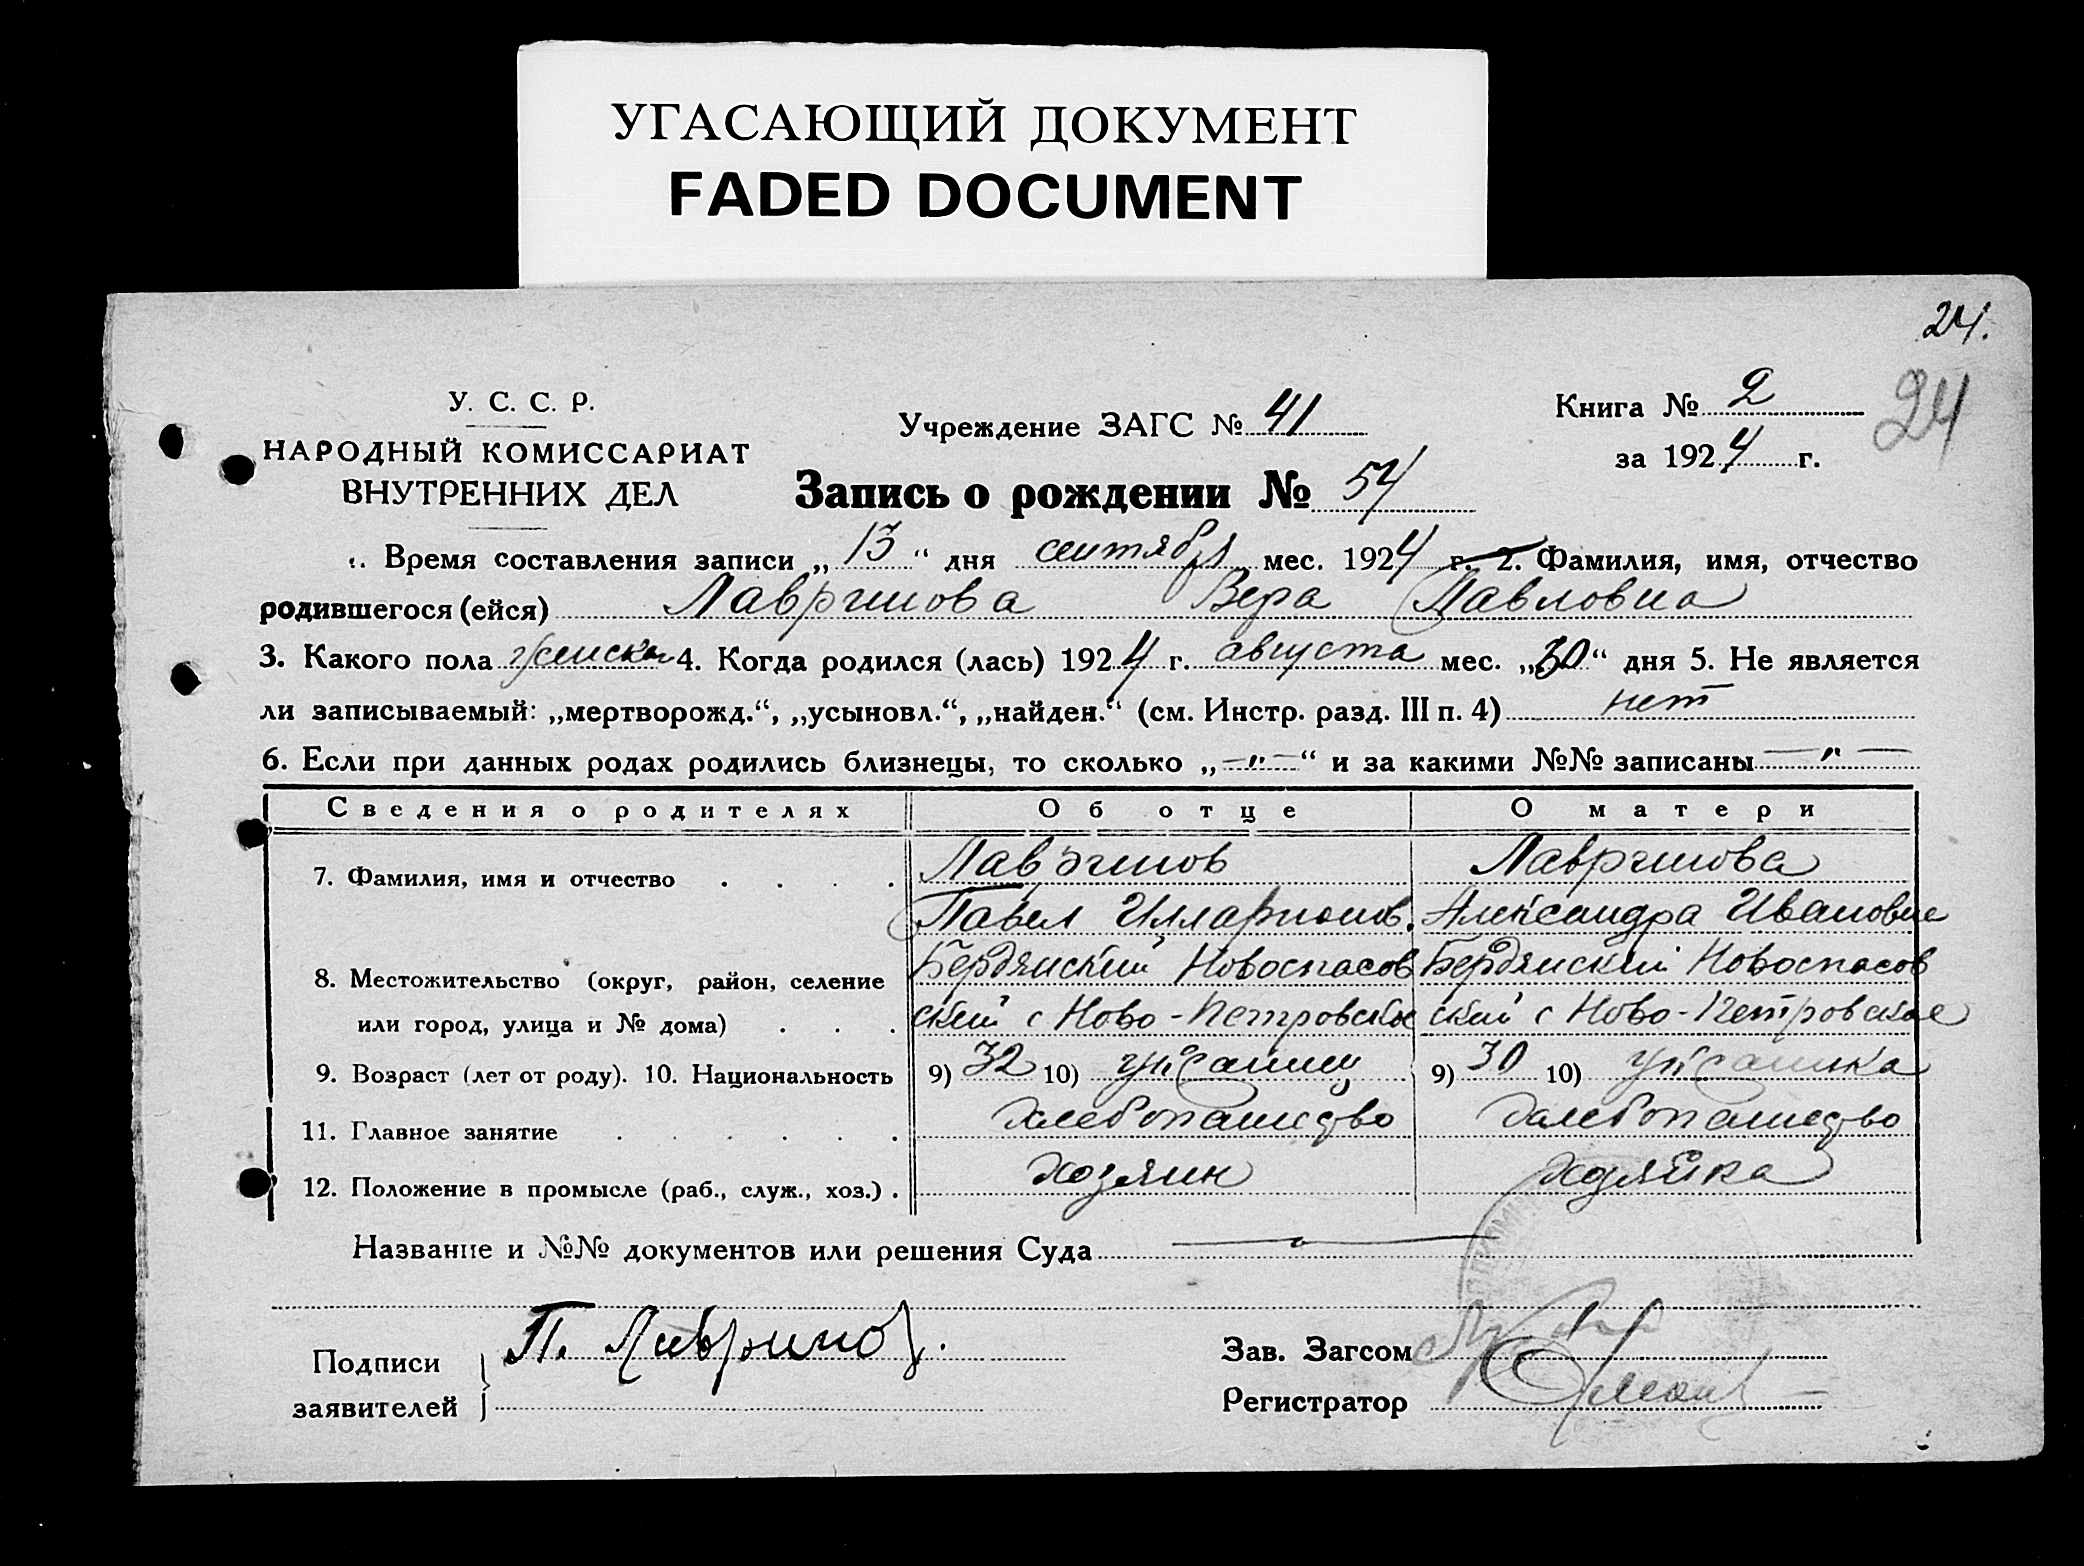 УГАСАЮЩИЙ ДОКУМЕНТ
FADED DOCUMENT
24.
24
У. С. С. Р.
НАРОДНЫЙ КОМИССАРИАТ
ВНУТРЕННИХ ДЕЛ
Учреждение ЗАГС № 41
Книга № 2
за 1924 г.
Запись о рождении № 54
Время составления записи „13“ дня сентября мес. 1924 г. 2. Фамилия, имя, отчество
родившегося (ейся) Лавринова Вера Павловна
3. Какого пола женска 4. Когда родился (лась) 1924 г. августа мес. „30“ дня 5. Не является
ли записываемый: „мертворожд.“, „усыновл.“, „найден.“ (см. Инстр. разд. III п. 4) нет
6. Если при данных родах родились близнецы, то сколько „—"—“ и за какими №№ записаны —"—
Сведения о родителях Об отце О матери
7. Фамилия, имя и отчество . . . . Лавринов Лавринова
Павел Илларионов. Александра Ивановне
8. Местожительство (округ, район, селение Бердянский Новоспасов Бердянский Новоспасов
или город, улица и № дома) . . . ский с Ново-Петровское ский с Ново-Петровское
9. Возраст (лет от роду). 10. Национальность 9) 32 10) украинец 9) 30 10) украинка
11. Главное занятие . . . . . . хлебопашество хлебопашество
12. Положение в промысле (раб., служ., хоз.) . хозяин хозяйка
Название и №№ документов или решения Суда
Подписи заявителей П. Лавринов.
Зав. Загсом
Регистратор